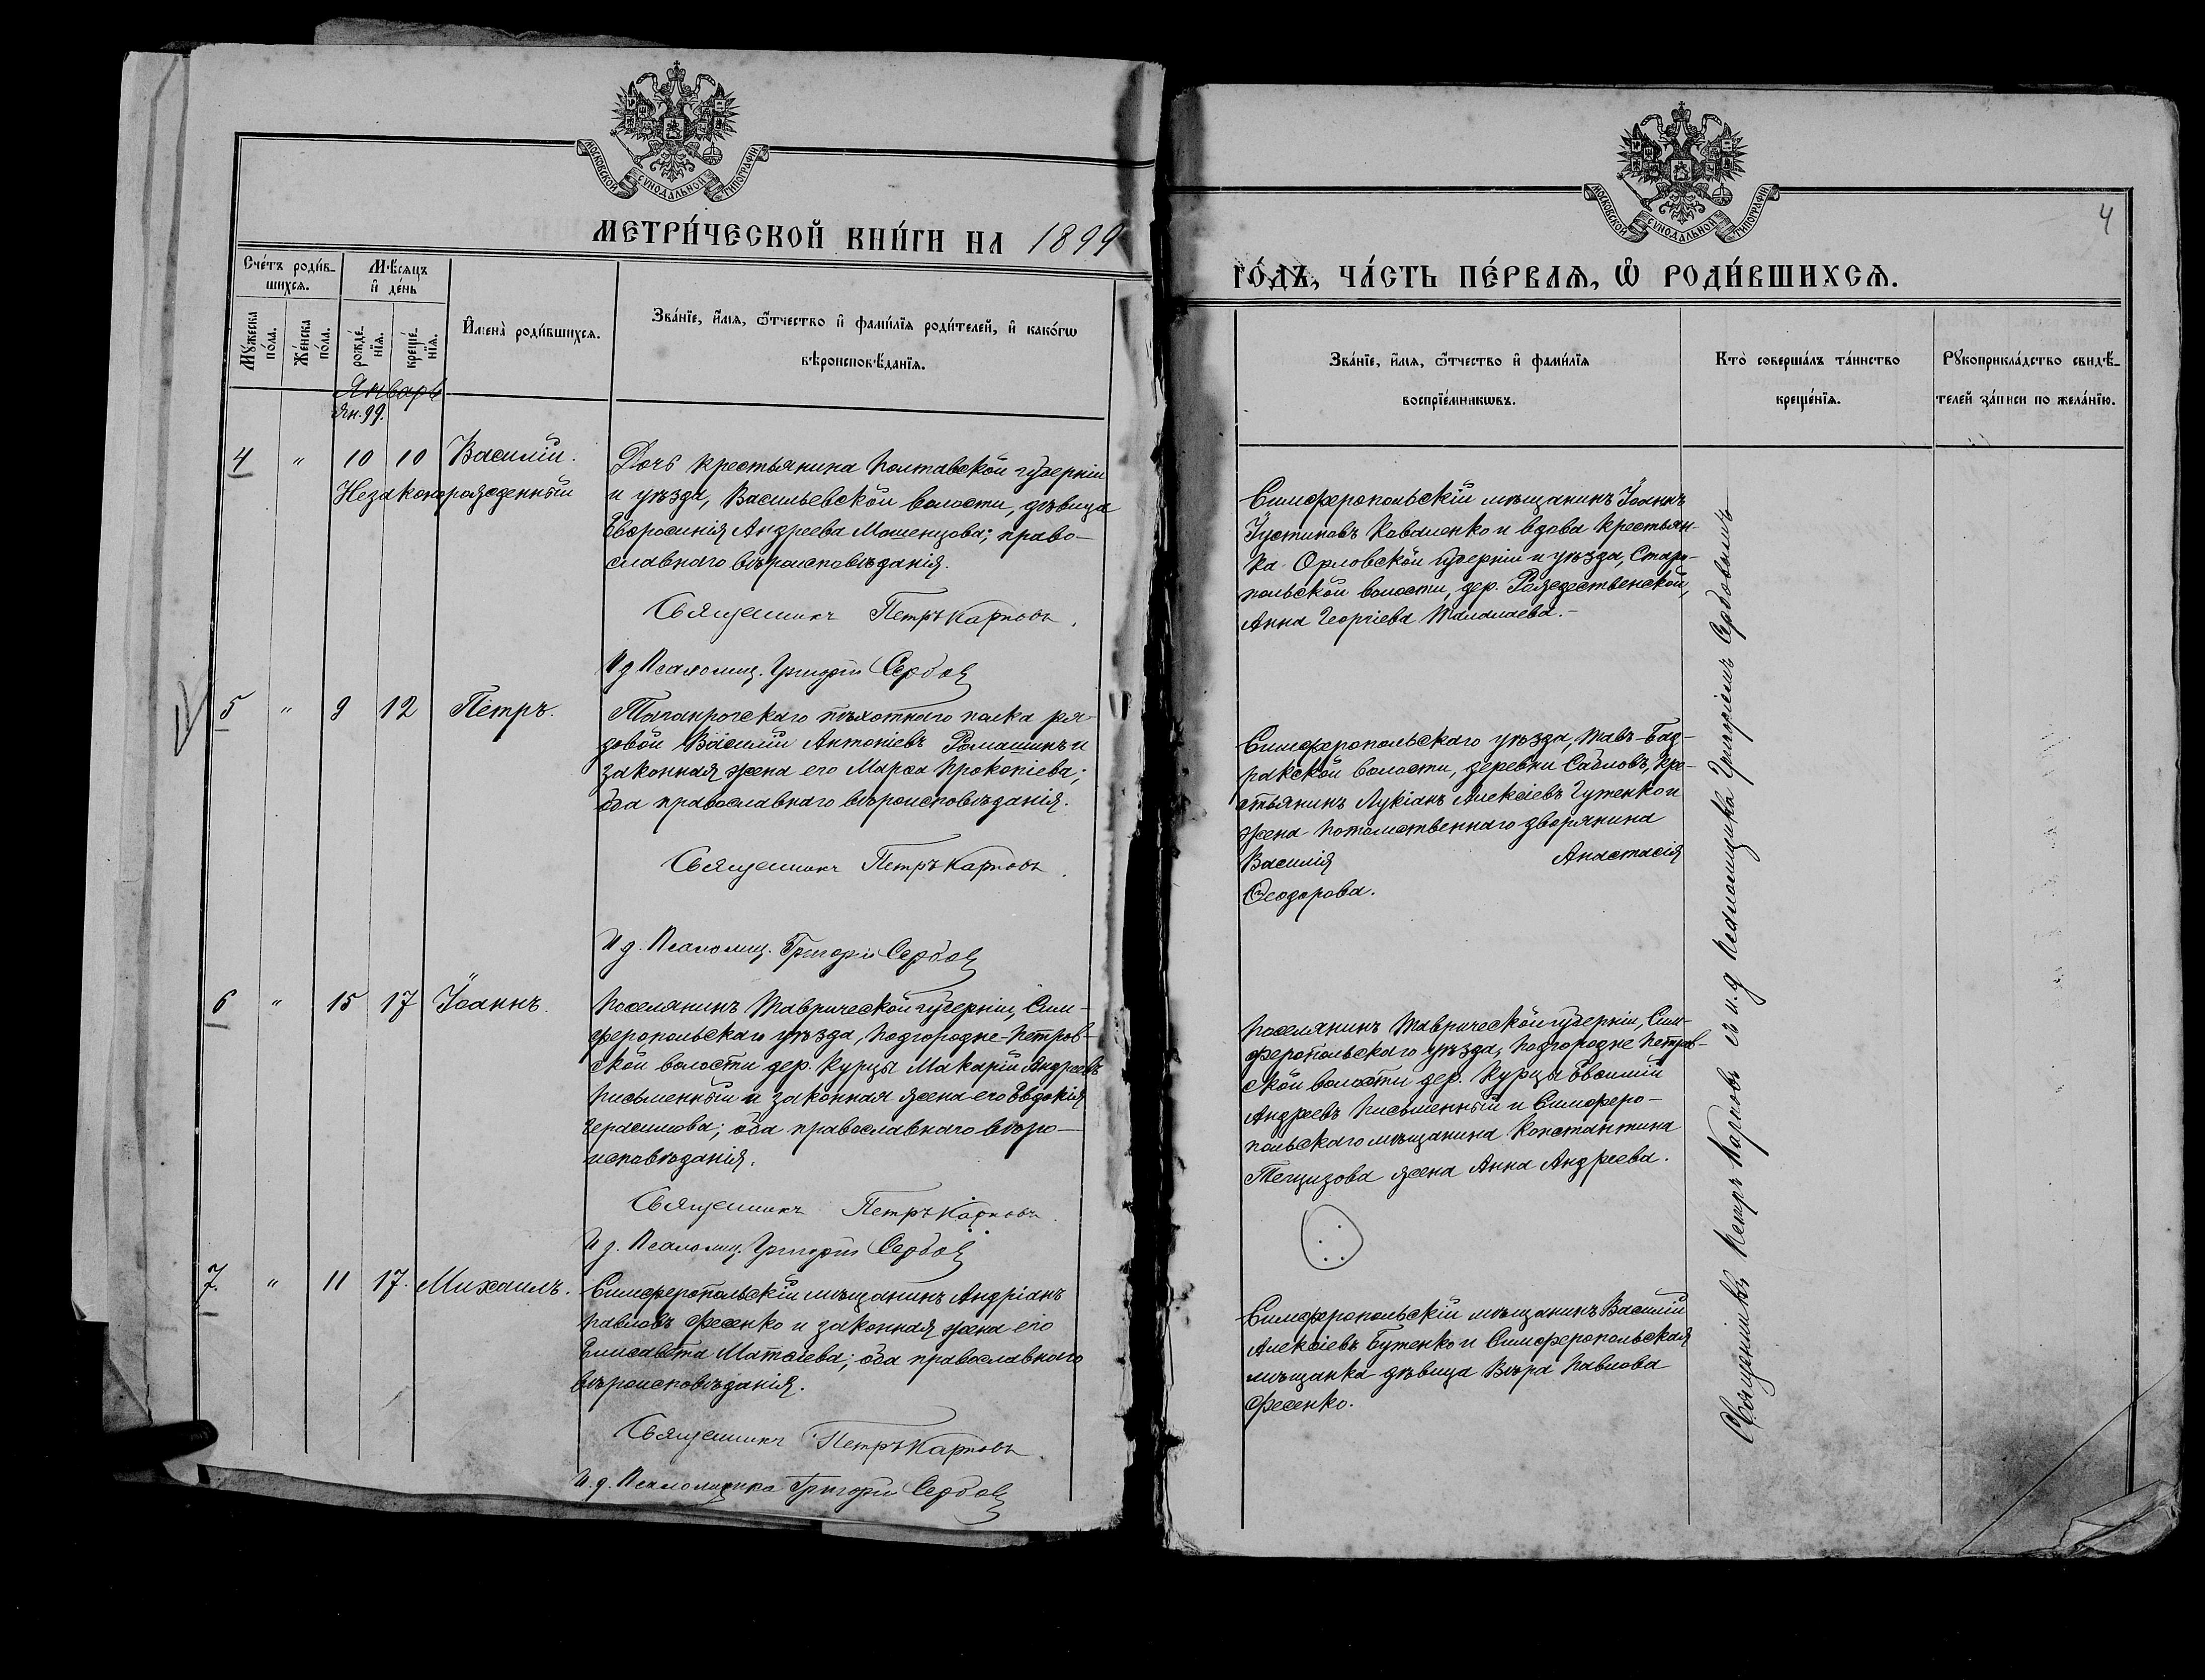 МОСКОВСКОЙ СѴНОДАЛЬНОЙ ТИПОГРАФІИ
МЕТРИ́ЧЕСКОЙ КНИ́ГИ НА 1899
Сче́тъ роди́в-
шихсѧ.
Мѣ́сѧцъ
и҆ де́нь
Мꙋ́жеска
по́ла.
Же́нска
по́ла.
рожде́-
нїѧ.
креще́-
нїѧ.
И҆мена̀ роди́вшихсѧ.
Зва́нїе, и҆́мѧ, ѻ҆́тчество и҆ фами́лїѧ роди́телей, и҆ како́гѡ
вѣроисповѣ́данїѧ.
Январь
Ян. 99.
4 " 10 10 Василій.
Незаконорожденный
Дочь крестьянина Полтавской губерніи
и уѣзда, Васильевской волости, дѣвица
Евфросинія Андреева Мошенцова; право-
славнаго вѣроисповѣданія.
Священникъ Петръ Карповъ.
И д. Псаломщ. Григорій Сербовъ
5 " 9 12 Петръ.
Таганрогскаго пѣхотнаго полка ря-
довой Василій Антоніевъ Ромашинъ и
законная жена его Марѳа Прокопіева;
оба православнаго вѣроисповѣданія.
Священникъ Петръ Карповъ.
И д. Псаломщ. Григорій Сербовъ
6 " 15 17 Іоаннъ.
Поселянинъ Таврической губерніи, Сим-
феропольскаго уѣзда, Подгородне-Петров-
ской волости дер. Курцы Макарій Андреевъ
Письменный и законная жена его Евдокія
Герасимова; оба православнаго вѣро-
исповѣданія.
Священникъ Петръ Карповъ.
И д. Псаломщ. Григорій Сербовъ
7. " 11 17. Михаилъ.
Симферопольскій мѣщанинъ Андріанъ
Павловъ Фесенко и законная жена его
Елисавета Матѳіева; оба православнаго
вѣроисповѣданія.
Священникъ Петръ Карповъ.
И. д. Псаломщика Григорій Сербовъ
МОСКОВСКОЙ СѴНОДАЛЬНОЙ ТИПОГРАФІИ
4
ГО́ДЪ, ЧА́СТЬ ПЕ́РВАѦ, Ѽ РОДИ́ВШИХСѦ.
Зва́нїе, и҆́мѧ, ѻ҆́тчество и҆ фами́лїѧ
воспрїе́мникѡвъ.
Кто̀ соверша́лъ та́инство
креще́нїѧ.
Рꙋкоприкла́дство свидѣ́-
телей за́писи по жела́нїю.
Симферопольскій мѣщанинъ Іоаннъ
Іустиновъ Коваленко и вдова крестьян-
ка Орловской губерніи и уѣзда, Старо-
польской волости, дер. Рождественской,
Анна Георгіева Малалаева.-
Симферопольскаго уѣзда, Тавъ-Бад-
ракской волости, деревни Сабловъ, кре-
стьянинъ Лукіанъ Алексіевъ Гутенко и
жена потомственнаго дворянина
Василія Анастасія
Ѳеодорова.
Поселянинъ Таврической губерніи, Сим-
феропольскаго уѣзда, Подгородне Петров-
ской волости дер. Курцы Евѳимій
Андреевъ Письменный и Симферо-
польскаго мѣщанина Константина
жена Анна Андреева.
Симферопольскій мѣщанинъ Василій
Алексіевъ Бутенко и Симферопольская
мѣщанка дѣвица Вѣра Павлова
Фесенко.
Священникъ Петръ Карповъ съ и. д псаломщика Григоріемъ Сербовымъ